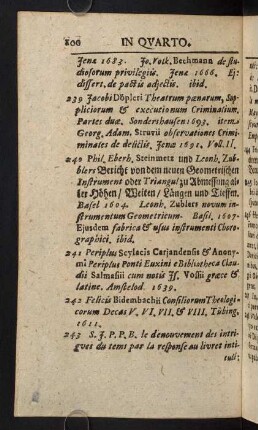 800 IN QVARTO.
Jenæ 1683. Jo. Volk. Bechmann de stu-
diosorum privilegiis. Jenæ 1666. Ej:
dissert. de pactis adjectis. ibid.
239 Jacobi Döpleri Theatrum pœnarum, Sup-
pliciorum & executionum Criminalium,
Partes duæ. Sondershausen 1693. item.
Georg. Adam. Struvii observationes Crimi-
minates de delictis. Jenæ 1691. Vol. II.
240 Phil. Eberh. Steinmetz und Leonh. Zub-
blers Bericht von dem neuen Geometrischen
Instrument oder Triangu/ zu Abmessung
der Höhen/ Weiten/ Längen und Tieffen.
Basel 1604. Leonh. Zublers novum in-
strumentum Geometricum. Basil. 1607.
Ejusdem fabrica & usus instrumenti Choro-
graphici. ibid.
241 Periplus Scylacis Carjandensis & Anony-
mi Periplus Ponti Euxini e Bibliotheca Clau-
dii Salmasii cum notis Js. Vossii græce &
latine. Amstelod. 1639.
242 Felicis Bidembachii Consiliorum Theologi-
corum Decas V. VI. VII, & VIII, Tübing.
1611.
243 S. J. P. P. B. le denouvement des intri-
gues du tems par la response au livret inti-
tulé;